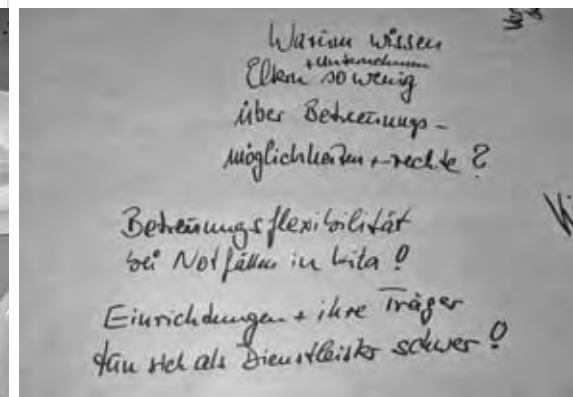 Warum wissen
+ Unternehmen
Eltern so wenig
über Betreuungs-
möglichkeiten + -rechte?
Betreuungsflexibilität
bei Notfällen in Kita!
Einrichtungen + ihre Träger
tun sich als Dienstleister schwer!